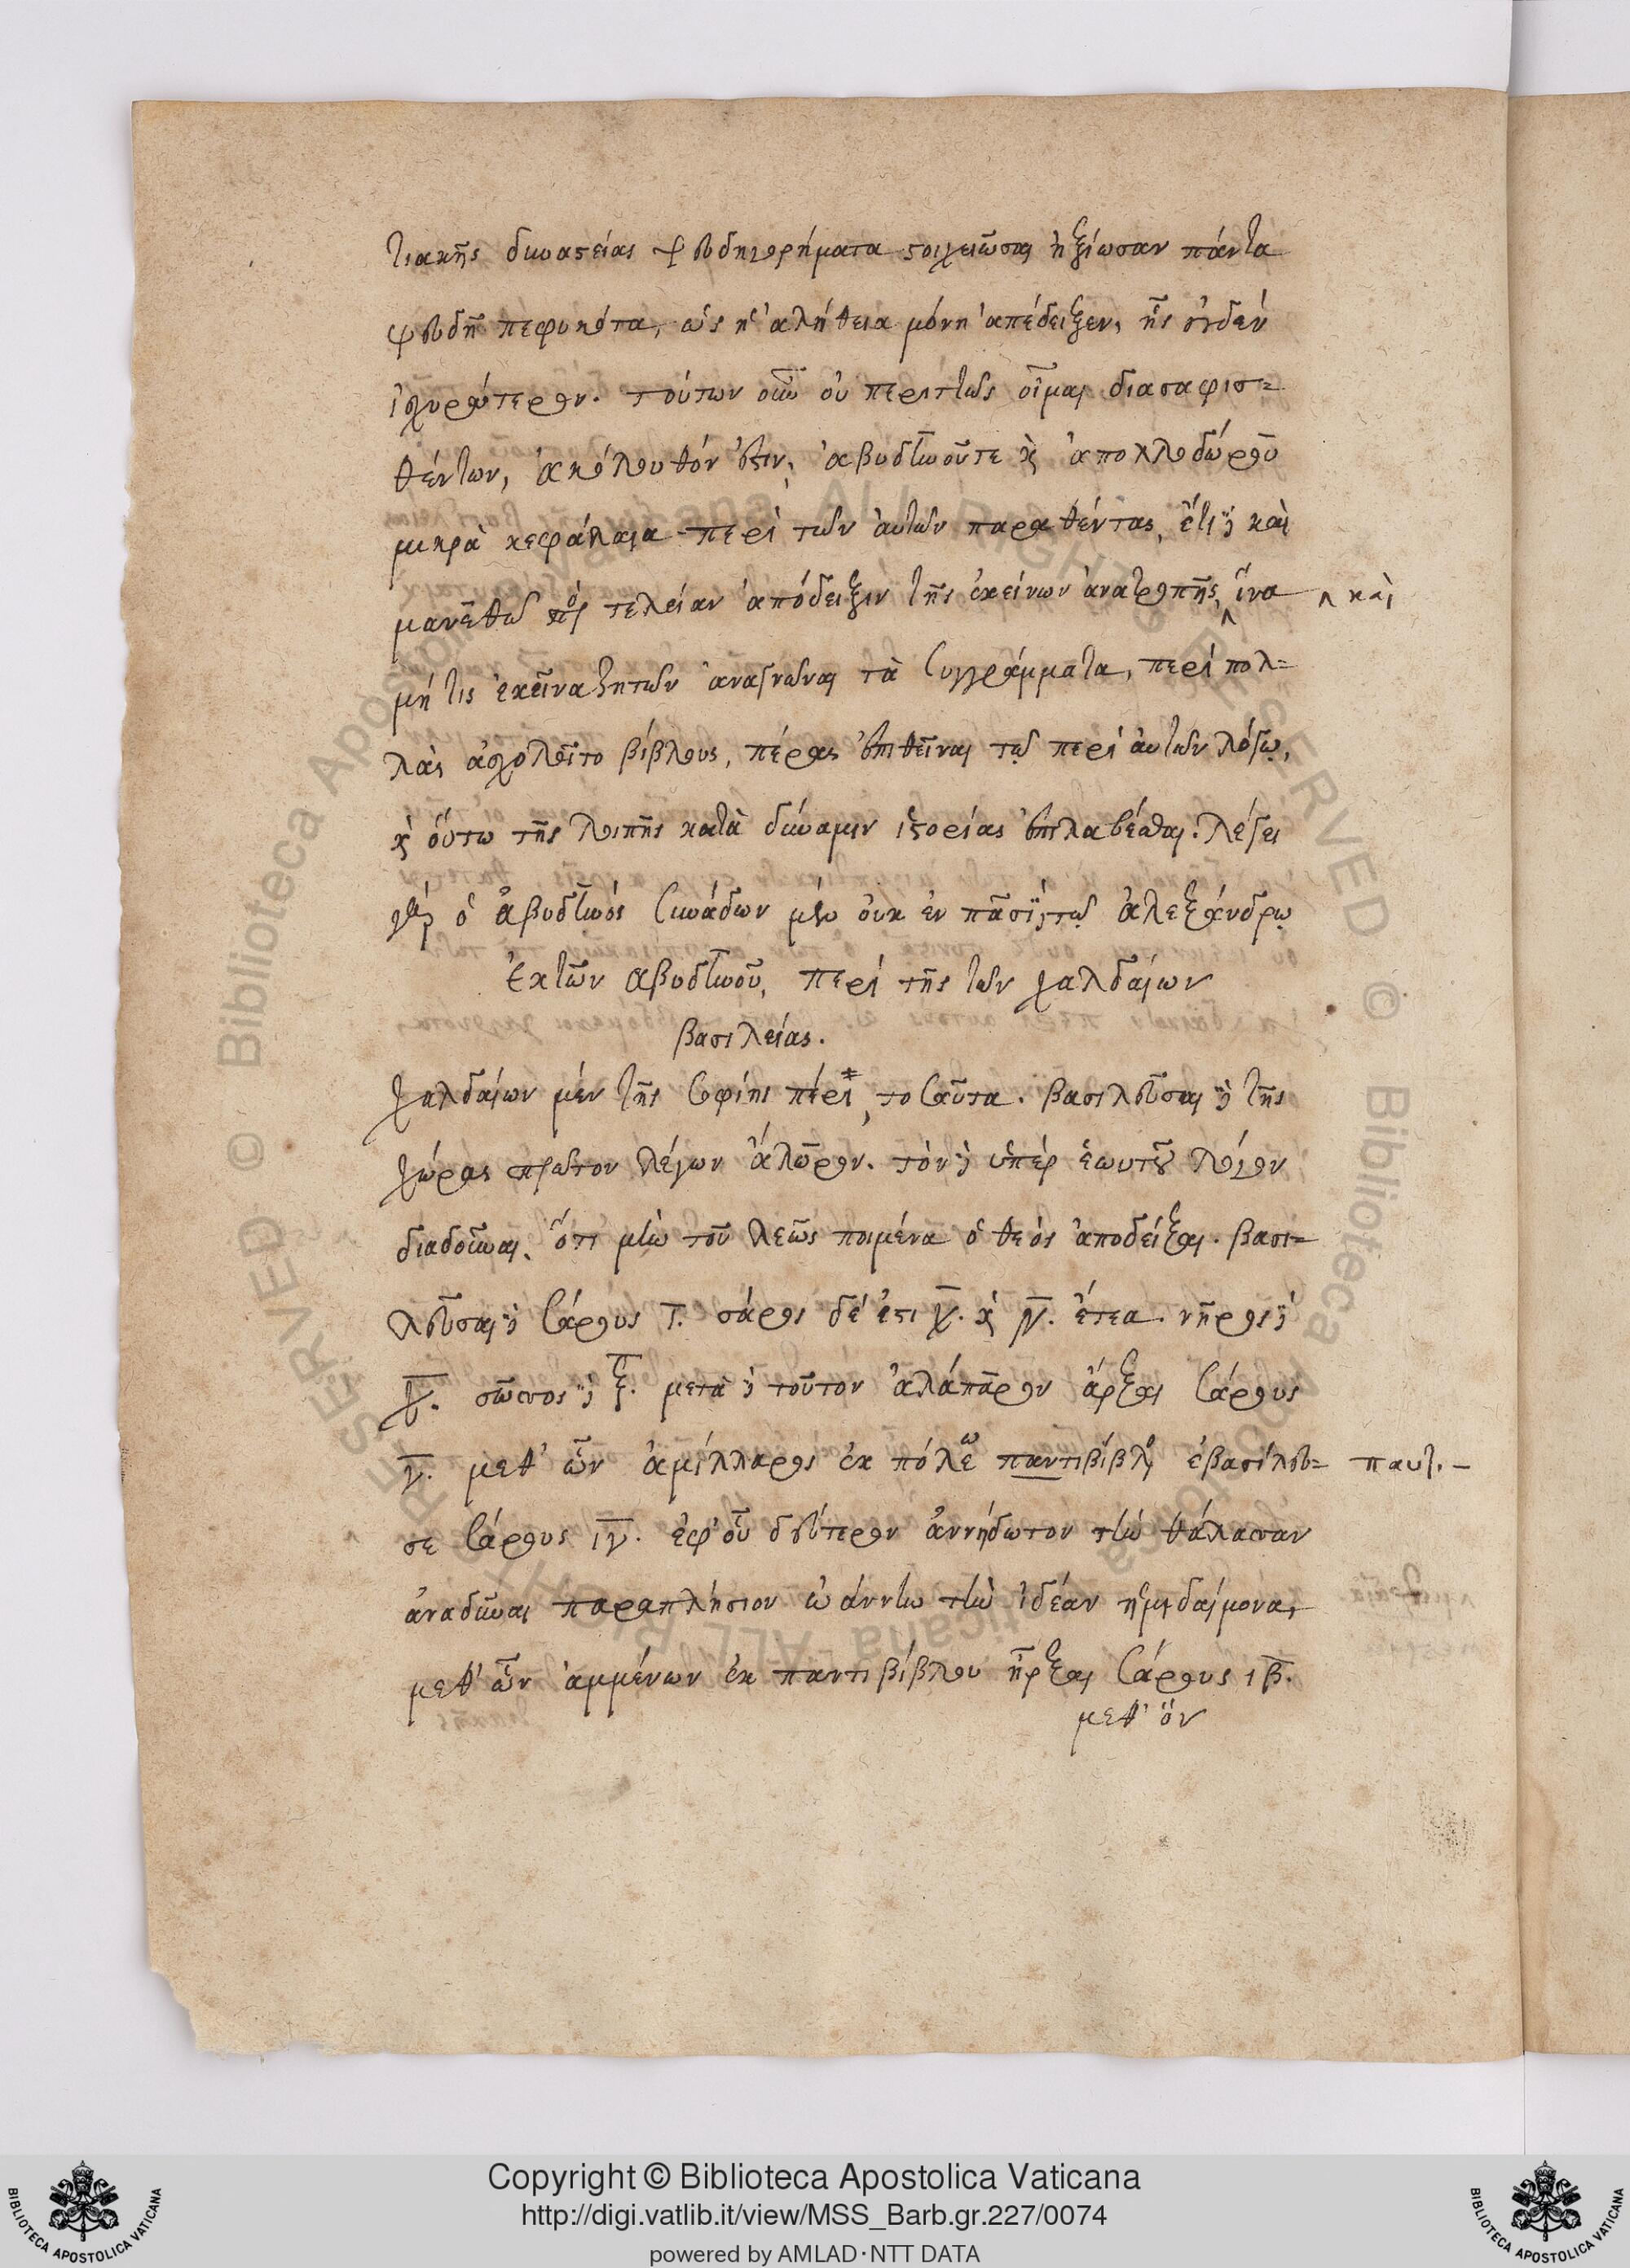 τιακῆς δυναστείας ψευδηγορήματα στοιχειῶσαι ἠξίωσαν πάντα
ψευδῆ πεφυκότα, ὡς ἡ ἀλήθεια μόνη ἀπέδειξεν, ἧς οὐδέν
ἰσχυρώτερον. τούτων οὖν οὐ περιττῶς οἶμαι διασαφισ=
θέντων, ἀκόλουθόν ἐστιν, ἀβυδηνοῦτε καὶ ἀπολλοδώρου
μικρὰ κεφάλαια περὶ τῶν ἀυτῶν παραθέντας, ἔτι δὲ καὶ
μανεθῶ πρὸς τελείαν ἀπόδειξιν τῆς ἐκείνων ἀνατροπῆς, ἵνα ‸ καὶ
μή τις ἐκεῖνα ζητῶν ἀναγνῶναι τὰ συγγράμματα, περὶ πολ=
λὰς ἀσχολοῖτο βίβλους, πέρας ἐπιθεῖναι τῷ περὶ ἀυτῶν λόγῳ,
καὶ οὕτω τῆς λοιπῆς κατὰ δύναμιν ἱστορίας ἐπιλαβέσθαι. λέγει
γὰρ ὁ ἀβυδηνός συνάδων μὲν οὐκ ἐν πᾶσι δὲ τῷ ἀλεξάνδρῳ
ἐκ τῶν ἀβυδηνοῦ, περὶ τῆς τῶν χαλδαίων
βασιλείας.
χαλδαίων μέν τῆς σοφίης πέρι, τοσαῦτα. βασιλεῦσαι δὲ τῆς
χώρας πρῶτον λέγων ἄλωρον. τὸν δὲ ὑπὲρ ἑωυτοῦ λόγον
διαδοῦναι, ὅτι μὶν τοῦ λεῶς ποιμένα ὁ θεὸς ἀποδείξαι. βασι=
λεῦσαι δὲ σάρους ι. σάρος δέ ἐστι χ. καὶ γ. ἔτεα. νῆρος δὲ
χ. σῶσσος δὲ ξ. μετὰ δὲ τοῦτον ἀλάπαρον ἄρξαι σάρους
γ. μεθ' ὧν ἀμίλλαρος ἐκ πόλεως παντιβίβλου ἐβασίλευ= παυτ. –
σε σάρους ιγ. ἐφ' οὗ δεύτερον ἀννήδωτον τὴν θάλασσαν
ἀναδῦναι παραπλήσιον ὠάννῃ τὴν ἰδέαν ἡμιδαίμονα,
μεθ' ὧν ἀμμένων ἐκ παντιβίβλου ἦρξαι σάρους ιβ.
μεθ' ὅν
Copyright © Biblioteca Apostolica Vaticana
http://digi.vatlib.it/view/MSS_Barb.gr.227/0074
powered by AMLAD·NTT DATA